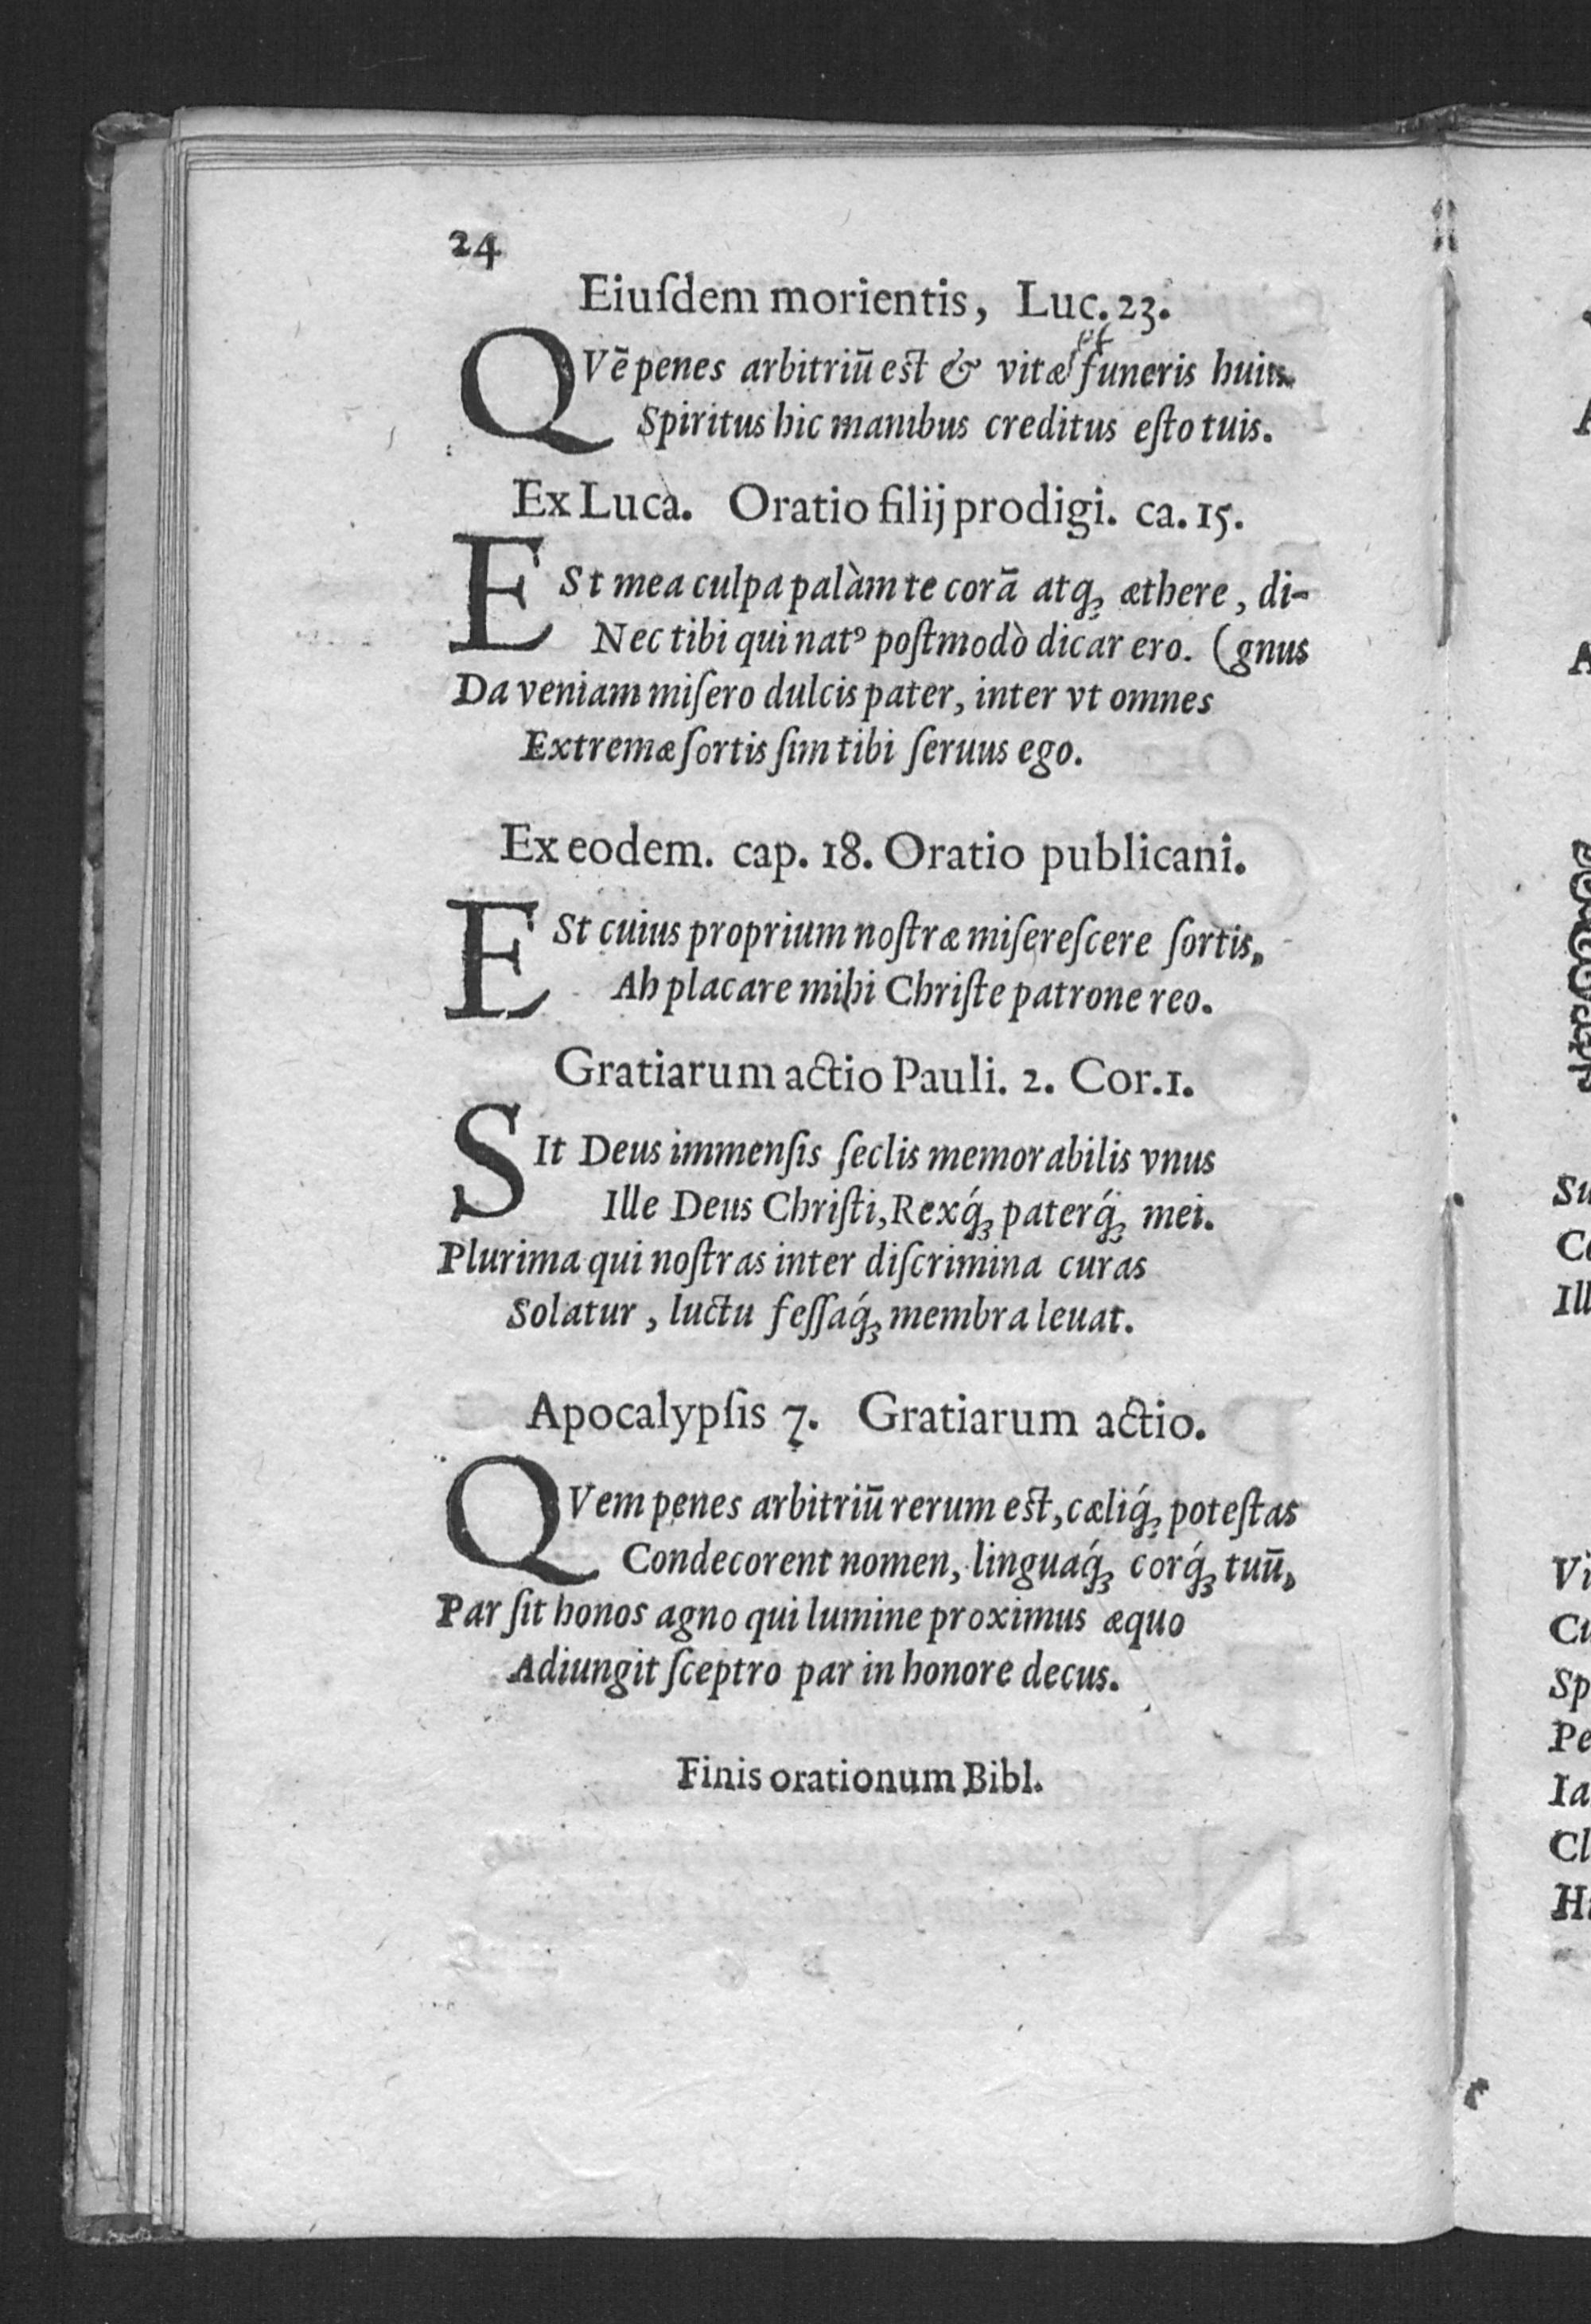 24
Eiuſdem morientis, Luc. 23.
QVē penes arbitriū est & vitæ et funeris huius
Spiritus hic manibus creditus eſto tuis.
Ex Luca. Oratio filij prodigi. ca. 15.
ESt mea culpa palàm te corā atqꝫ æthere, di-
Nec tibi qui natꝰ poſtmodò dicar ero. (gnus
Da veniam miſero dulcis pater, inter vt omnes
Extremæ ſortis ſim tibi ſeruus ego.
Ex eodem. cap. 18. Oratio publicani.
ESt cuius proprium noſtræ miſereſcere ſortis,
Ah placare mihi Chriſte patrone reo.
Gratiarum actio Pauli. 2. Cor. 1.
SIt Deus immenſis ſeclis memorabilis vnus
Ille Deus Chriſti, Rexq́ꝫ paterq́ꝫ mei.
Plurima qui noſtras inter diſcrimina curas
Solatur, luctu feſſaq́ꝫ membra leuat.
Apocalypſis 7. Gratiarum actio.
QVem penes arbitriū rerum est, cæliq́ꝫ poteſtas
Condecorent nomen, linguaq́ꝫ corq́ꝫ tuū,
Par ſit honos agno qui lumine proximus æquo
Adiungit ſceptro par in honore decus.
Finis orationum Bibl.
Su
Ill
Vi
Sp
Pe
Ia
Cl